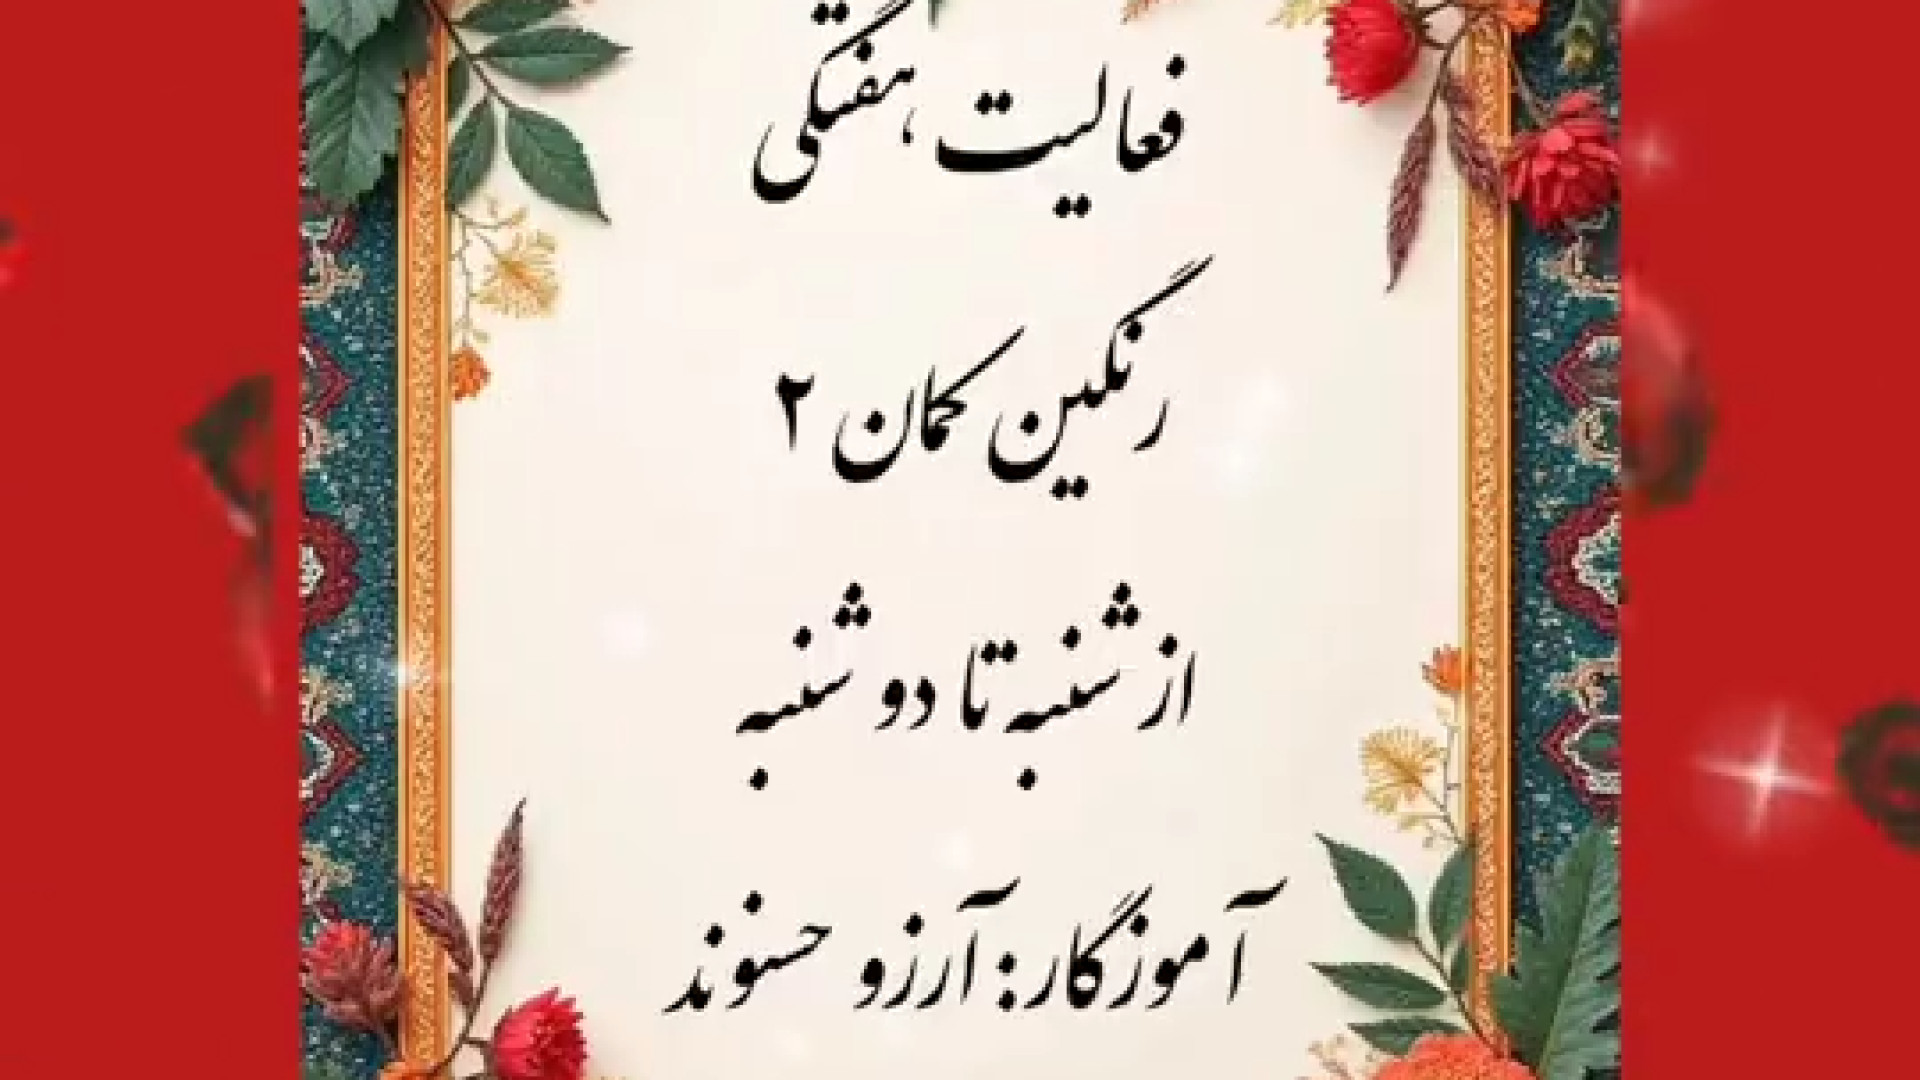 فعالیت هفتگی
رنگین کمان ۲
از شنبه تا دوشنبه
آموزگار: آرزو حسنوند